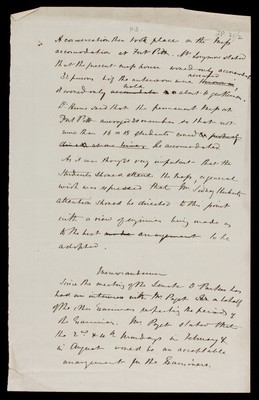 A conversation then took place on the Mess
accomodation at Fort Pitt. Dr Longmore stated
that the present mess house would only accomodate
32 persons if the anteroom were
it would only hold about 20 gentlemen.
Dr said that the permanent mess at
Fort Pitt averaged 20 members so that not
more than 16 or 18 students could
be accomodated
As it was thought very important that the
Students should attend the Mess, a general
wish was expressed that Mr Sidney Herbert's
attention should be directed to the point
with a view of enquiries being made as
to the best arrangement to be
adopted.
Memorandum
Since the meeting of the Senate Dr Parkes has
had an interview with Mr Paget on behalf
of the other Examiners respecting the periods of
the Examiners. Mr Paget stated that
the 2nd & 4th Mondays in February &
in August would be an acceptable
arrangement for the Examiners.